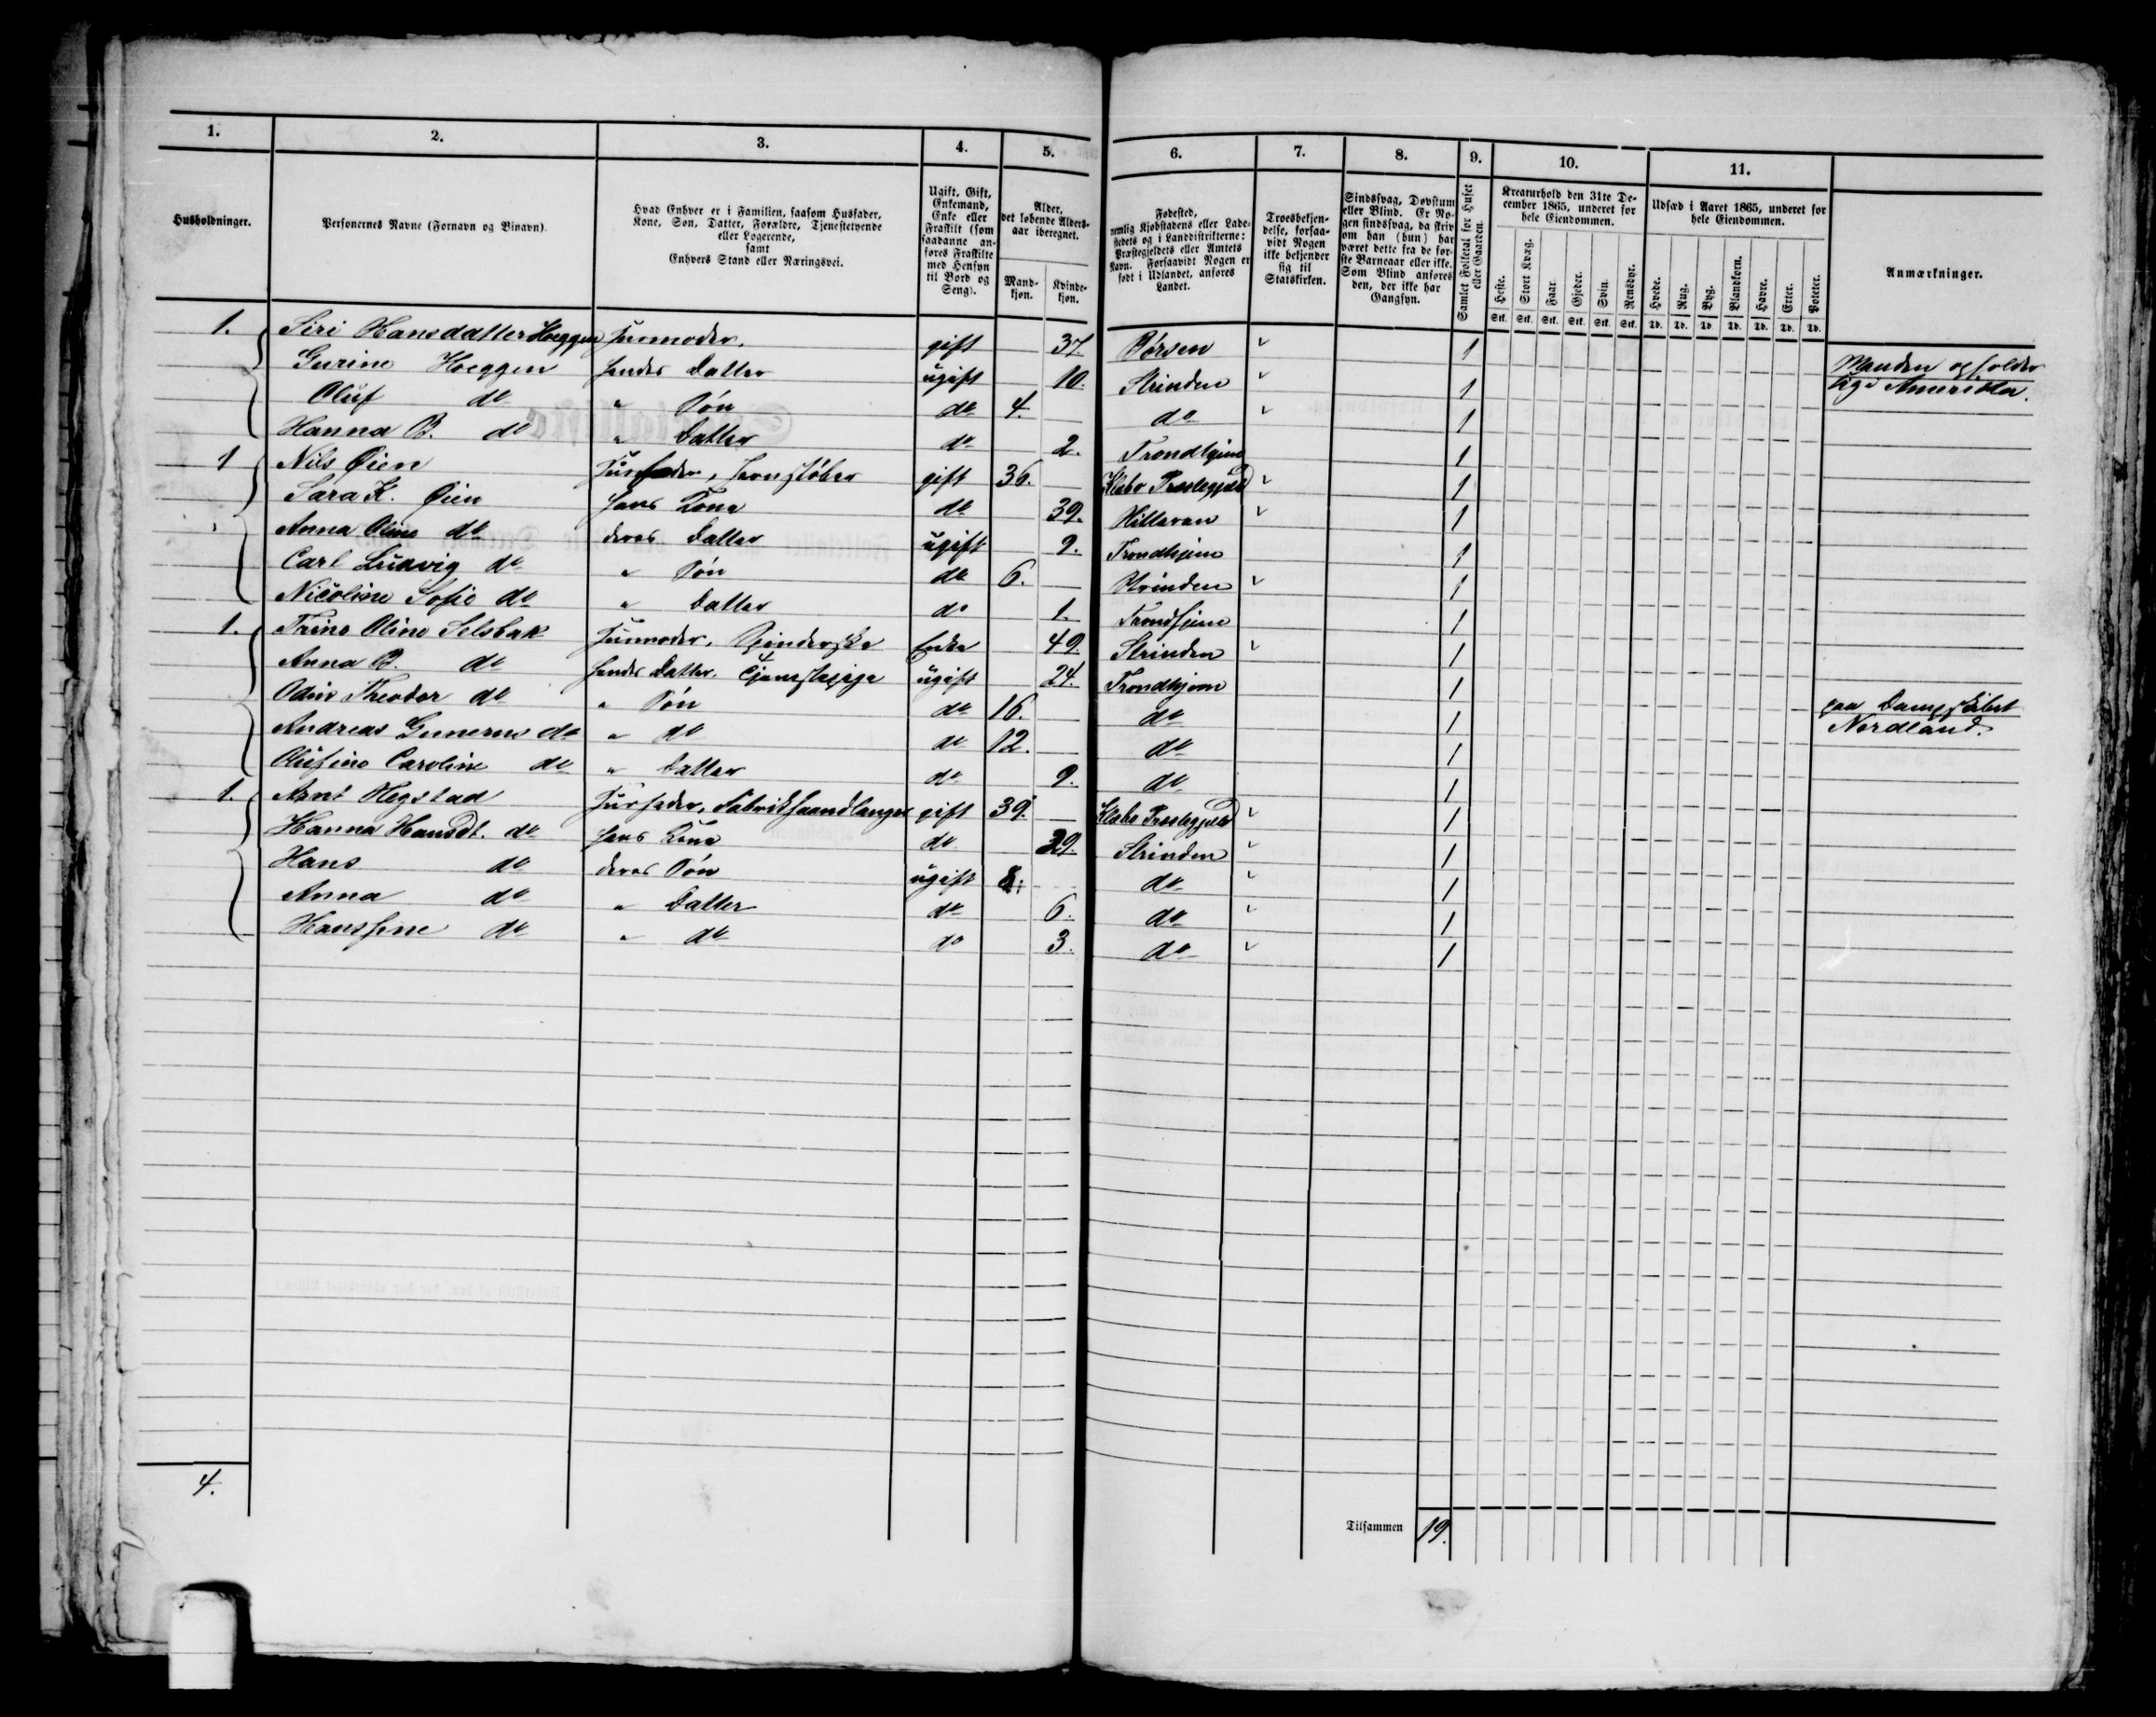 1. 2. 3. 4. 5. 6. 7. 8. 9. 10. 11.
Husholdninger.
Personernes Navne (Fornavn og Binavn).
Hvad Enhver er i Familien, saasom Husfader,
Kone, Søn, Datter, Forældre, Tjenestetyende
eller Logerende,
samt
Enhvers Stand eller Næringsvei.
Ugift, Gift,
Enkemand,
Enke eller
Fraskilt (som
saadanne an-
føres Fraskilte
med Hensyn
til Bord og
Seng).
Alder,
det løbende Alders-
aar iberegnet.
Mand-
kjøn.
Kvinde-
kjøn.
Fødested,
nemlig Kjøbstadens eller Lade-
stedets og i Landdistrikterne:
Præstegjeldets eller Amtets
Navn. Forsaavidt Nogen er
født i Udlandet, anføres
Landet.
Troesbekjen-
delse, forsaa-
vidt Nogen
ikke bekjender
sig til
Statskirken.
Sindssvag, Døvstum
eller Blind. Er No-
gen sindssvag, da skriv
om han (hun) har
været dette fra de før-
ste Barneaar eller ikke.
Som Blind anføres
den, der ikke har
Gangsyn.
Samlet Folketal for Huset
eller Gaarden.
Kreaturhold den 31te De-
cember 1865, underet for
hele Eiendommen.
Heste. Stort Kvæg. Faar. Gjeder. Svin. Rensdyr.
Stk. Stk. Stk. Stk. Stk. Stk.
Udsæd i Aaret 1865, underet for
hele Eiendommen.
Hvede. Rug. Byg. Blandkorn. Havre. Erter. Poteter.
Td. Td. Td. Td. Td. Td. Td.
Anmærkninger.
1. Siri Hansdatter Hoeggen Husmoder. gift 37 Børsen 1 Manden opholder
Gurine Hoeggen hendes Datter ugift 10. Strinden 1 sig i Amerika.
Oluf do " Søn do 4. do 1
Hanna B. do " Datter do 2. Trondhjem 1
1 Nils Øien Husfader, Jernstøber gift 36. Klæbo Præstegjæld 1
Sara K. Øien hans Kone do 39. Hitteren 1
Anna Oline do deres Datter ugift 9. Trondhjem 1
Carl Ludvig do " Søn do 6. Strinden 1
Nicoline Sofie do " Datter do 1. Trondhjem 1
1. Trine Oline Selsbak Husmoder, Spinderske Enke 49. Strinden 1
Anna B. do hendes Datter, Tjenestepige ugift 24. Trondhjem 1
Odin Theodor do " Søn do 16. do 1 paa Dampskibet
Andreas Gunerus do " do do 12. do 1 Nordland.
Olufine Caroline do " Datter do 9. do 1
1. Arnt Hegstad Husfader, Fabrikhaandlanger gift 39. Klæbo Præstegjæld 1
Hanna Hansdt. do hans Kone do 39. Strinden 1
Hans do deres Søn ugift 8. do 1
Anna do " Datter do 6. do 1
Hansine do " do do 3. do 1
4.
Tilsammen 19.